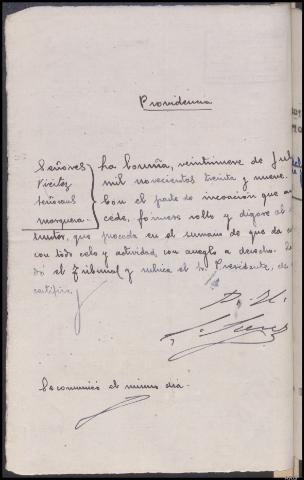 Providencia
Señores
Vieitez
Señaris
Mosquera
La Coruña, veintinueve de Jul
mil novecientos treinta y nueve.
Con el parte de incoación que an
cede, fórmese rollo y dígase al
tructor, que proceda en el sumario de que da cu
con todo celo y actividad, con arreglo a derecho.
dó el Tribunal y rubrica el Sr. Presidente, de
certifico.
Se comunicó el mismo día.